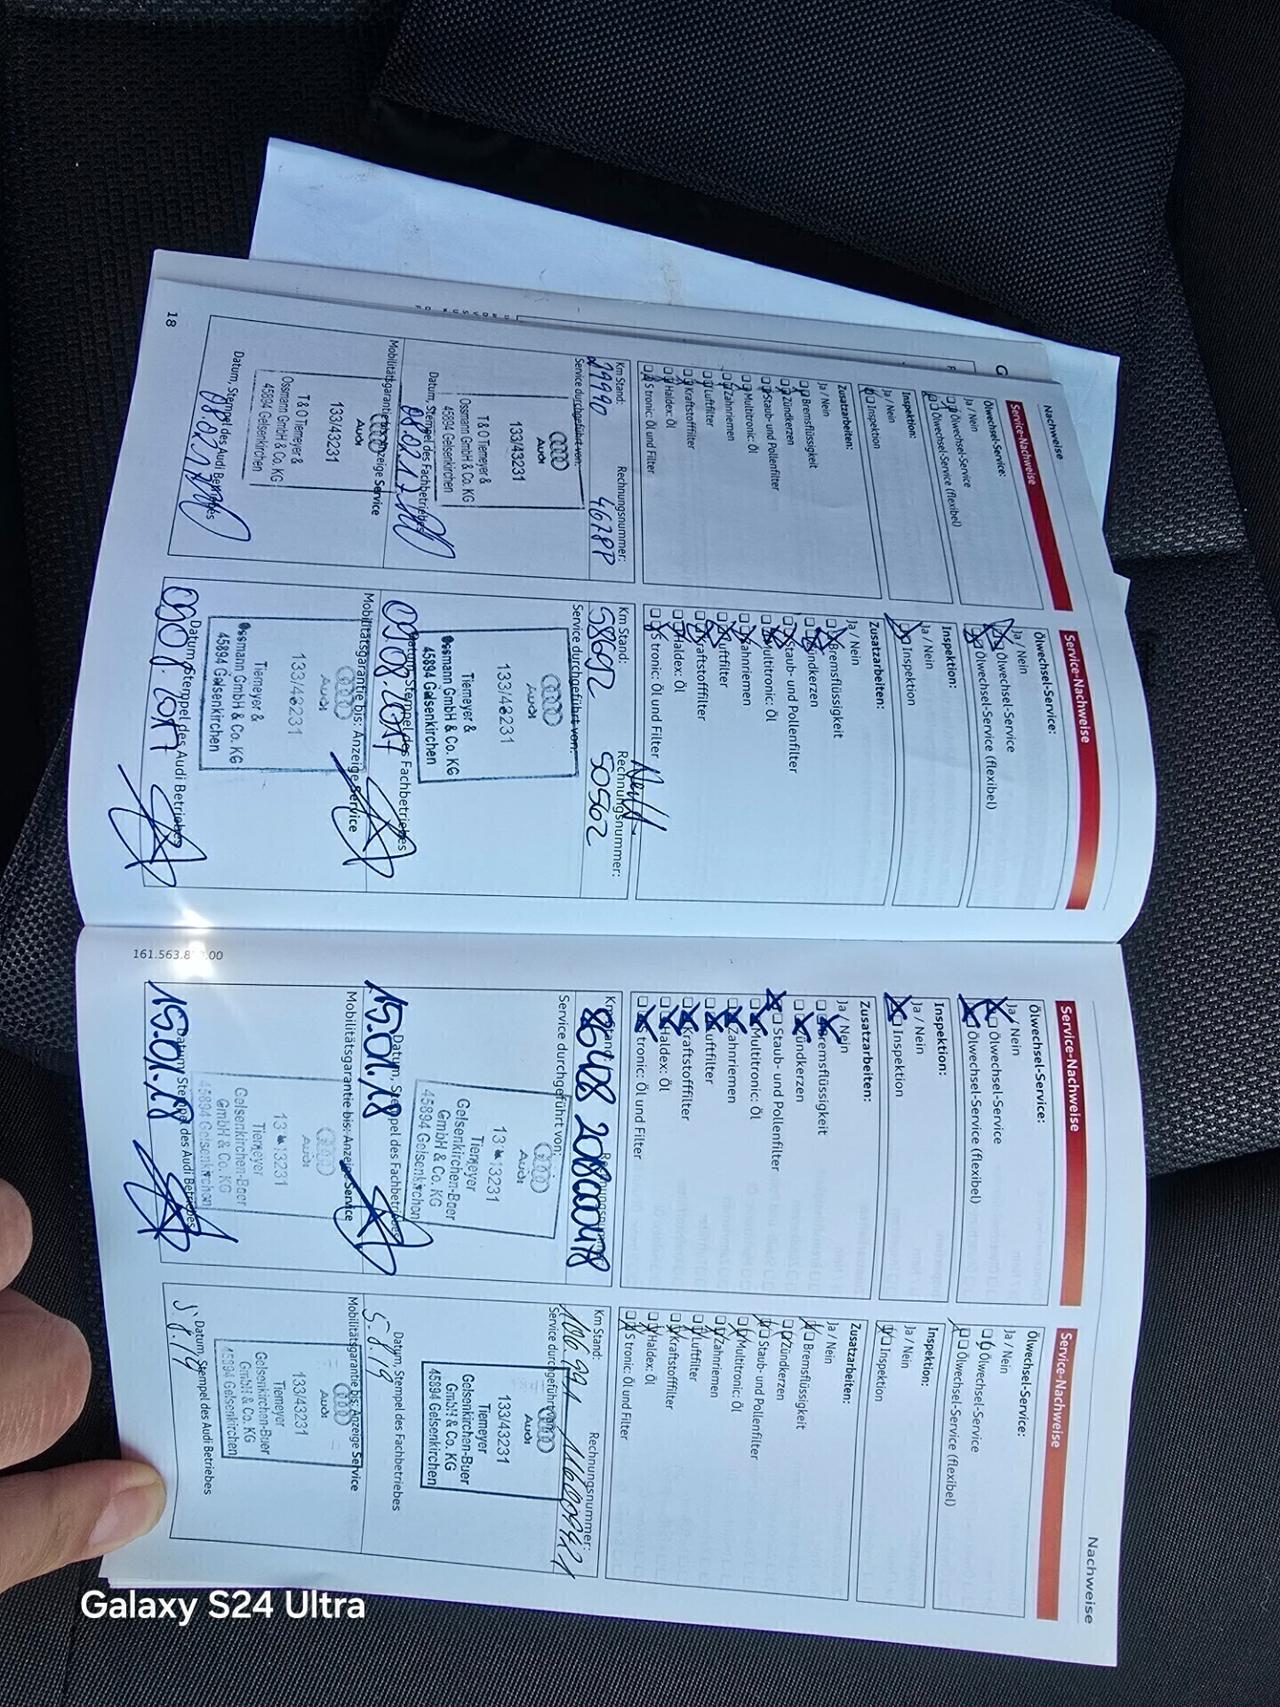 Nachweise
Service-Nachweise
Ölwechsel-Service:
Ja / Nein
Ölwechsel-Service
Ölwechsel-Service (flexibel)
Inspektion:
Ja / Nein
Inspektion
Zusatzarbeiten:
Ja / Nein
Bremsflüssigkeit
Zündkerzen
Staub- und Pollenfilter
Multitronic: Öl
Zahnriemen
Luftfilter
Kraftstofffilter
Haldex: Öl
S tronic: Öl und Filter
Km Stand: Rechnungsnummer:
Service durchgeführt von:
Audi
133/43231
T & O Tiemeyer &
Ossmann GmbH & Co. KG
45894 Gelsenkirchen
Datum, Stempel des Fachbetriebes
Mobilitätsgarantie bis: Anzeige Service
Audi
133/43231
T & O Tiemeyer &
Ossmann GmbH & Co. KG
45894 Gelsenkirchen
Datum, Stempel des Audi Betriebes
18
Service-Nachweise
Ölwechsel-Service:
Ja / Nein
Ölwechsel-Service
Ölwechsel-Service (flexibel)
Inspektion:
Ja / Nein
Inspektion
Zusatzarbeiten:
Ja / Nein
Bremsflüssigkeit
Zündkerzen
Staub- und Pollenfilter
Multitronic: Öl
Zahnriemen
Luftfilter
Kraftstofffilter
Haldex: Öl
S tronic: Öl und Filter
Km Stand: Rechnungsnummer:
58692 50562
Service durchgeführt von:
Audi
133/43231
Tiemeyer &
Ossmann GmbH & Co. KG
45894 Gelsenkirchen
Datum, Stempel des Fachbetriebes
09.08.2017
Mobilitätsgarantie bis: Anzeige Service
Audi
133/43231
Tiemeyer &
Ossmann GmbH & Co. KG
45894 Gelsenkirchen
Datum, Stempel des Audi Betriebes
09.08.2017
Service-Nachweise
Ölwechsel-Service:
Ja / Nein
Ölwechsel-Service
Ölwechsel-Service (flexibel)
Inspektion:
Ja / Nein
Inspektion
Zusatzarbeiten:
Ja / Nein
Bremsflüssigkeit
Zündkerzen
Staub- und Pollenfilter
Multitronic: Öl
Zahnriemen
Luftfilter
Kraftstofffilter
Haldex: Öl
S tronic: Öl und Filter
Km Stand: Rechnungsnummer:
Service durchgeführt von:
Audi
Tiemeyer
Gelsenkirchen-Buer
GmbH & Co. KG
45894 Gelsenkirchen
Datum, Stempel des Fachbetriebes
15.01.18
Mobilitätsgarantie bis: Anzeige Service
Audi
Tiemeyer
Gelsenkirchen-Buer
GmbH & Co. KG
45894 Gelsenkirchen
Datum, Stempel des Audi Betriebes
15.01.18
Nachweise
Service-Nachweise
Ölwechsel-Service:
Ja / Nein
Ölwechsel-Service
Ölwechsel-Service (flexibel)
Inspektion:
Ja / Nein
Inspektion
Zusatzarbeiten:
Ja / Nein
Bremsflüssigkeit
Zündkerzen
Staub- und Pollenfilter
Multitronic: Öl
Zahnriemen
Luftfilter
Kraftstofffilter
Haldex: Öl
S tronic: Öl und Filter
Km Stand: Rechnungsnummer:
106.991
Service durchgeführt von:
Audi
133/43231
Tiemeyer
Gelsenkirchen-Buer
GmbH & Co. KG
45894 Gelsenkirchen
Datum, Stempel des Fachbetriebes
5.8.19
Mobilitätsgarantie bis: Anzeige Service
Audi
133/43231
Tiemeyer
Gelsenkirchen-Buer
GmbH & Co. KG
45894 Gelsenkirchen
Datum, Stempel des Audi Betriebes
5.8.19
Galaxy S24 Ultra